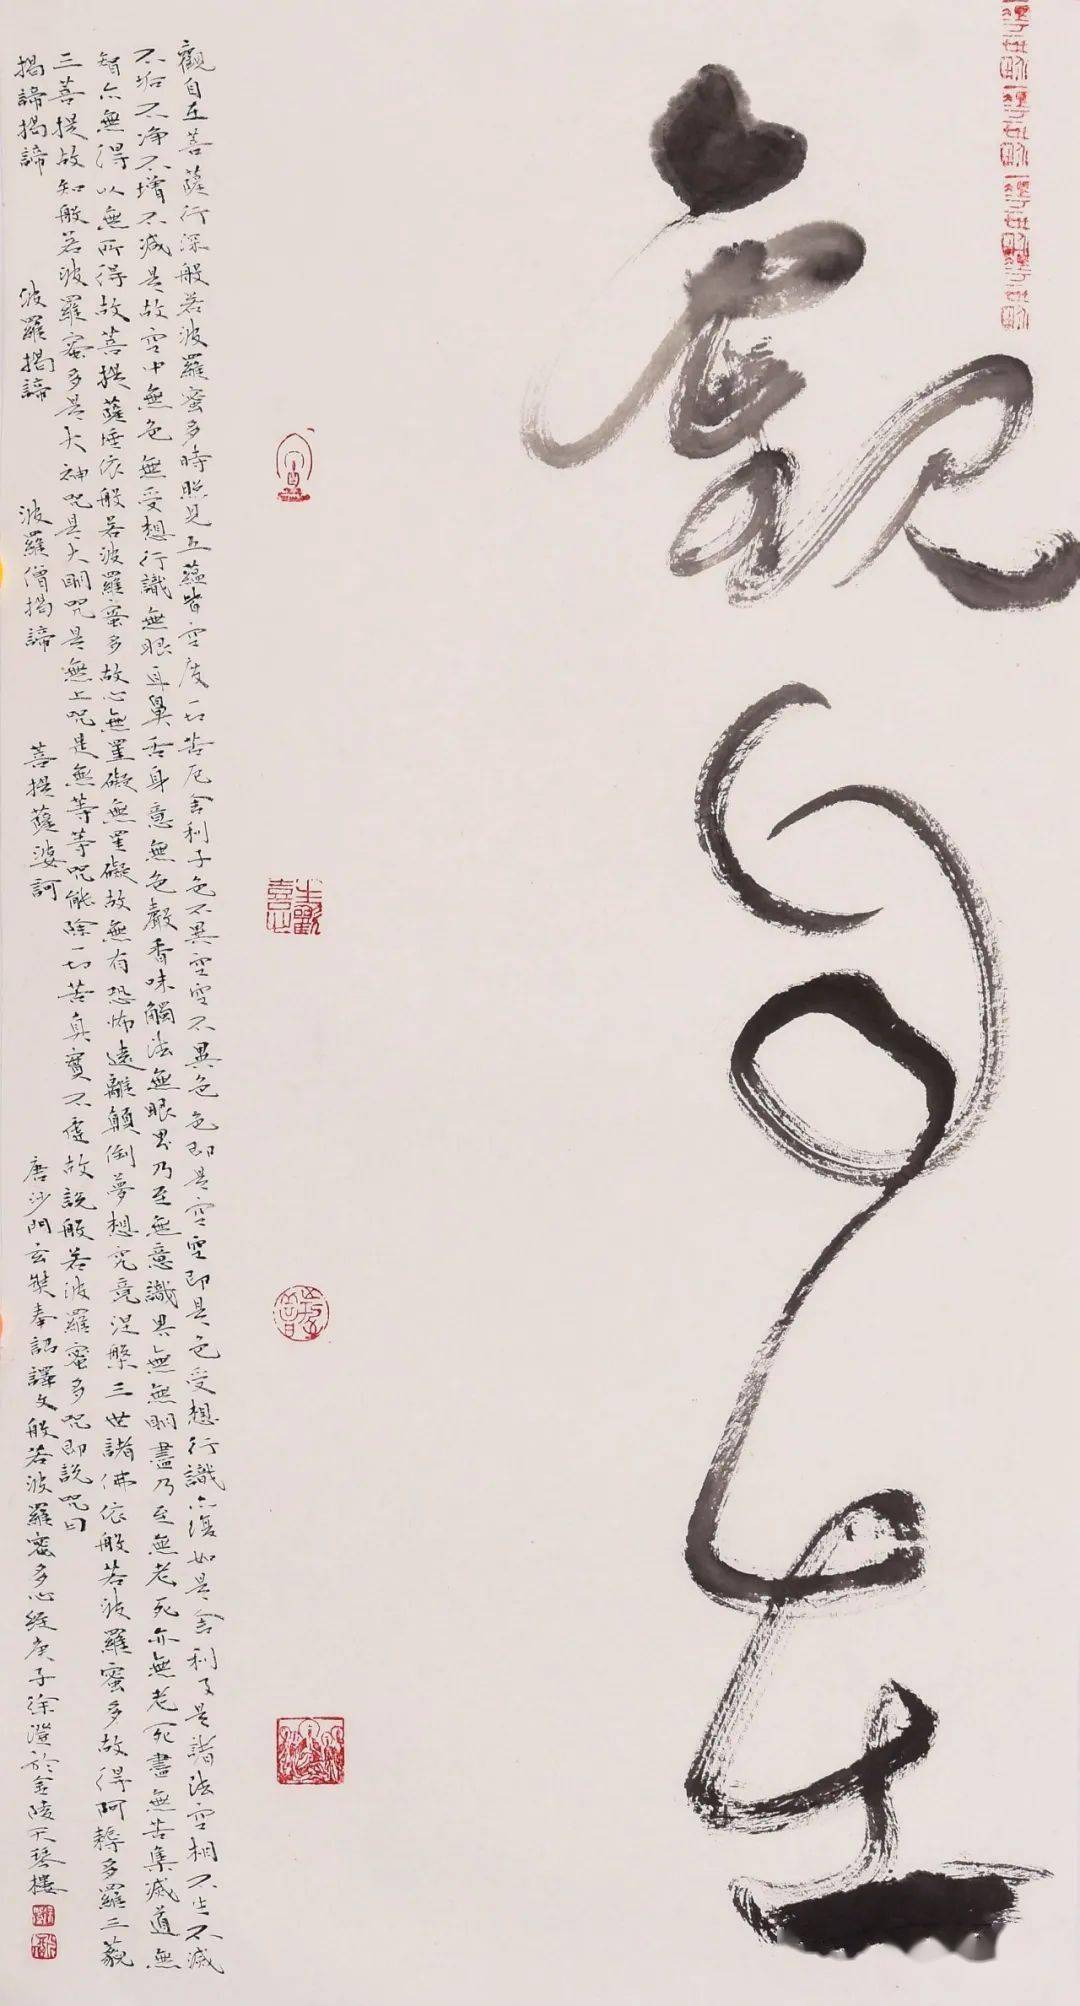 觀自在
觀自在菩薩行深般若波羅蜜多時照見五蘊皆空度一切苦厄舍利子色不異空空不異色色即是空空即是色受想行識亦復如是舍利子是諸法空相不生不滅
不垢不淨不增不減是故空中無色無受想行識無眼耳鼻舌身意無色聲香味觸法無眼界乃至無意識界無無明盡乃至無老死亦無老死盡無苦集滅道無
智亦無得以無所得故菩提薩埵依般若波羅蜜多故心無罣礙無罣礙故無有恐怖遠離顛倒夢想究竟涅槃三世諸佛依般若波羅蜜多故得阿耨多羅三藐
三菩提故知般若波羅蜜多是大神咒是大明咒是無上咒是無等等咒能除一切苦真實不虛故說般若波羅蜜多咒即說咒曰
揭諦揭諦 波羅揭諦 波羅僧揭諦 菩提薩婆訶 唐沙門玄奘奉詔譯文般若波羅蜜多心經庚子徐澄於金陵天琴樓